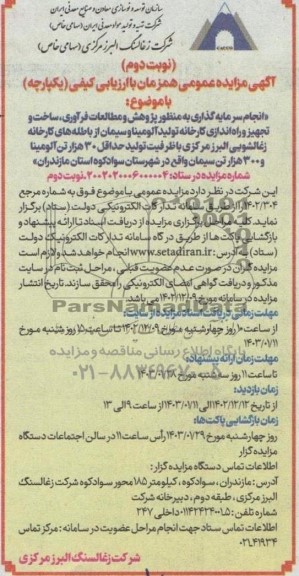 سازمان توسعه و نوسازی معادن و صنایع معدنی ایران
شرکت تهیه و تولید مواد معدنی ایران (سهامی خاص)
شرکت زغالسنگ البرز مرکزی (سهامی خاص)
(نوبت دوم)
آگهی مزایده عمومی همزمان با ارزیابی کیفی (یکپارچه)
با موضوع:
«انجام سرمایه گذاری به منظور پژوهش و مطالعات فرآوری، ساخت و
تجهیز و راه اندازی کارخانه تولید آلومینا و سیمان از باطله های کارخانه
زغالشویی البرز مرکزی با ظرفیت تولید حداقل ۳۰ هزار تن آلومینا
و ۳۰۰ هزار تن سیمان واقع در شهرستان سوادکوه استان مازندران»
شماره مزایده در ستاد: ۲۰۰۲۰۲۰۰۰۶۰۰۰۰۰۴ نوبت دوم
این شرکت در نظر دارد مزایده عمومی با موضوع فوق به شماره مرجع
۱۴۰۲/۳۰۴ را از طریق سامانه تدارکات الکترونیکی دولت (ستاد) برگزار
نماید. کلیه مراحل برگزاری مزایده از دریافت اسناد تا ارائه پیشنهاد و
بازگشایی پاکت ها از طریق درگاه سامانه تدارکات الکترونیک دولت
(ستاد) به آدرس: www.setadiran.ir انجام خواهد شد و لازم است
مزایده گران در صورت عدم عضویت قبلی، مراحل ثبت نام در سایت
مذکور و دریافت گواهی امضای الکترونیکی را محقق سازند. تاریخ انتشار
مزایده در سامانه مورخ ۱۴۰۲/۱۲/۰۹ می باشد.
مهلت زمانی دریافت اسناد مزایده از سایت:
از ساعت ۱۰ روز چهارشنبه مورخ ۱۴۰۲/۱۲/۰۹ تا ساعت ۱۵ روز شنبه مورخ
۱۴۰۳/۰۱/۱۱
مهلت زمانی ارائه پیشنهاد:
تا ساعت ۱۱ روز سه شنبه مورخ
زمان بازدید:
از تاریخ ۱۴۰۲/۱۲/۱۲ الی ۱۴۰۳/۰۱/۱۱ از ساعت ۹ الی ۱۳
زمان بازگشایی پاکت ها:
روز چهارشنبه مورخ ۱۴۰۳/۰۱/۲۹ رأس ساعت ۱۱ در سالن اجتماعات دستگاه
مزایده گزار
اطلاعات تماس دستگاه مزایده گزار:
آدرس: مازندران، سوادکوه، کیلومتر ۱۸۵ محور سوادکوه شرکت زغالسنگ
البرز مرکزی، طبقه دوم، دبیرخانه شرکت
شماره تلفن: ۰۱۱۴۲۴۲۴۰۰۱۵ داخلی ۲۴۷
اطلاعات تماس ستاد جهت انجام مراحل عضویت در سامانه: مرکز تماس
۰۲۱۴۱۹۳۴
شرکت زغالسنگ البرز مرکزی